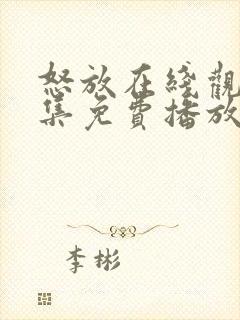 怒放在綫觀
集免費播放
李彬